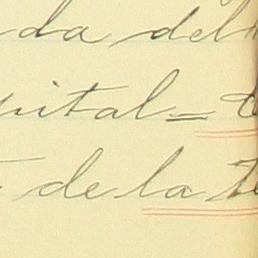 da del
pital =
de la te